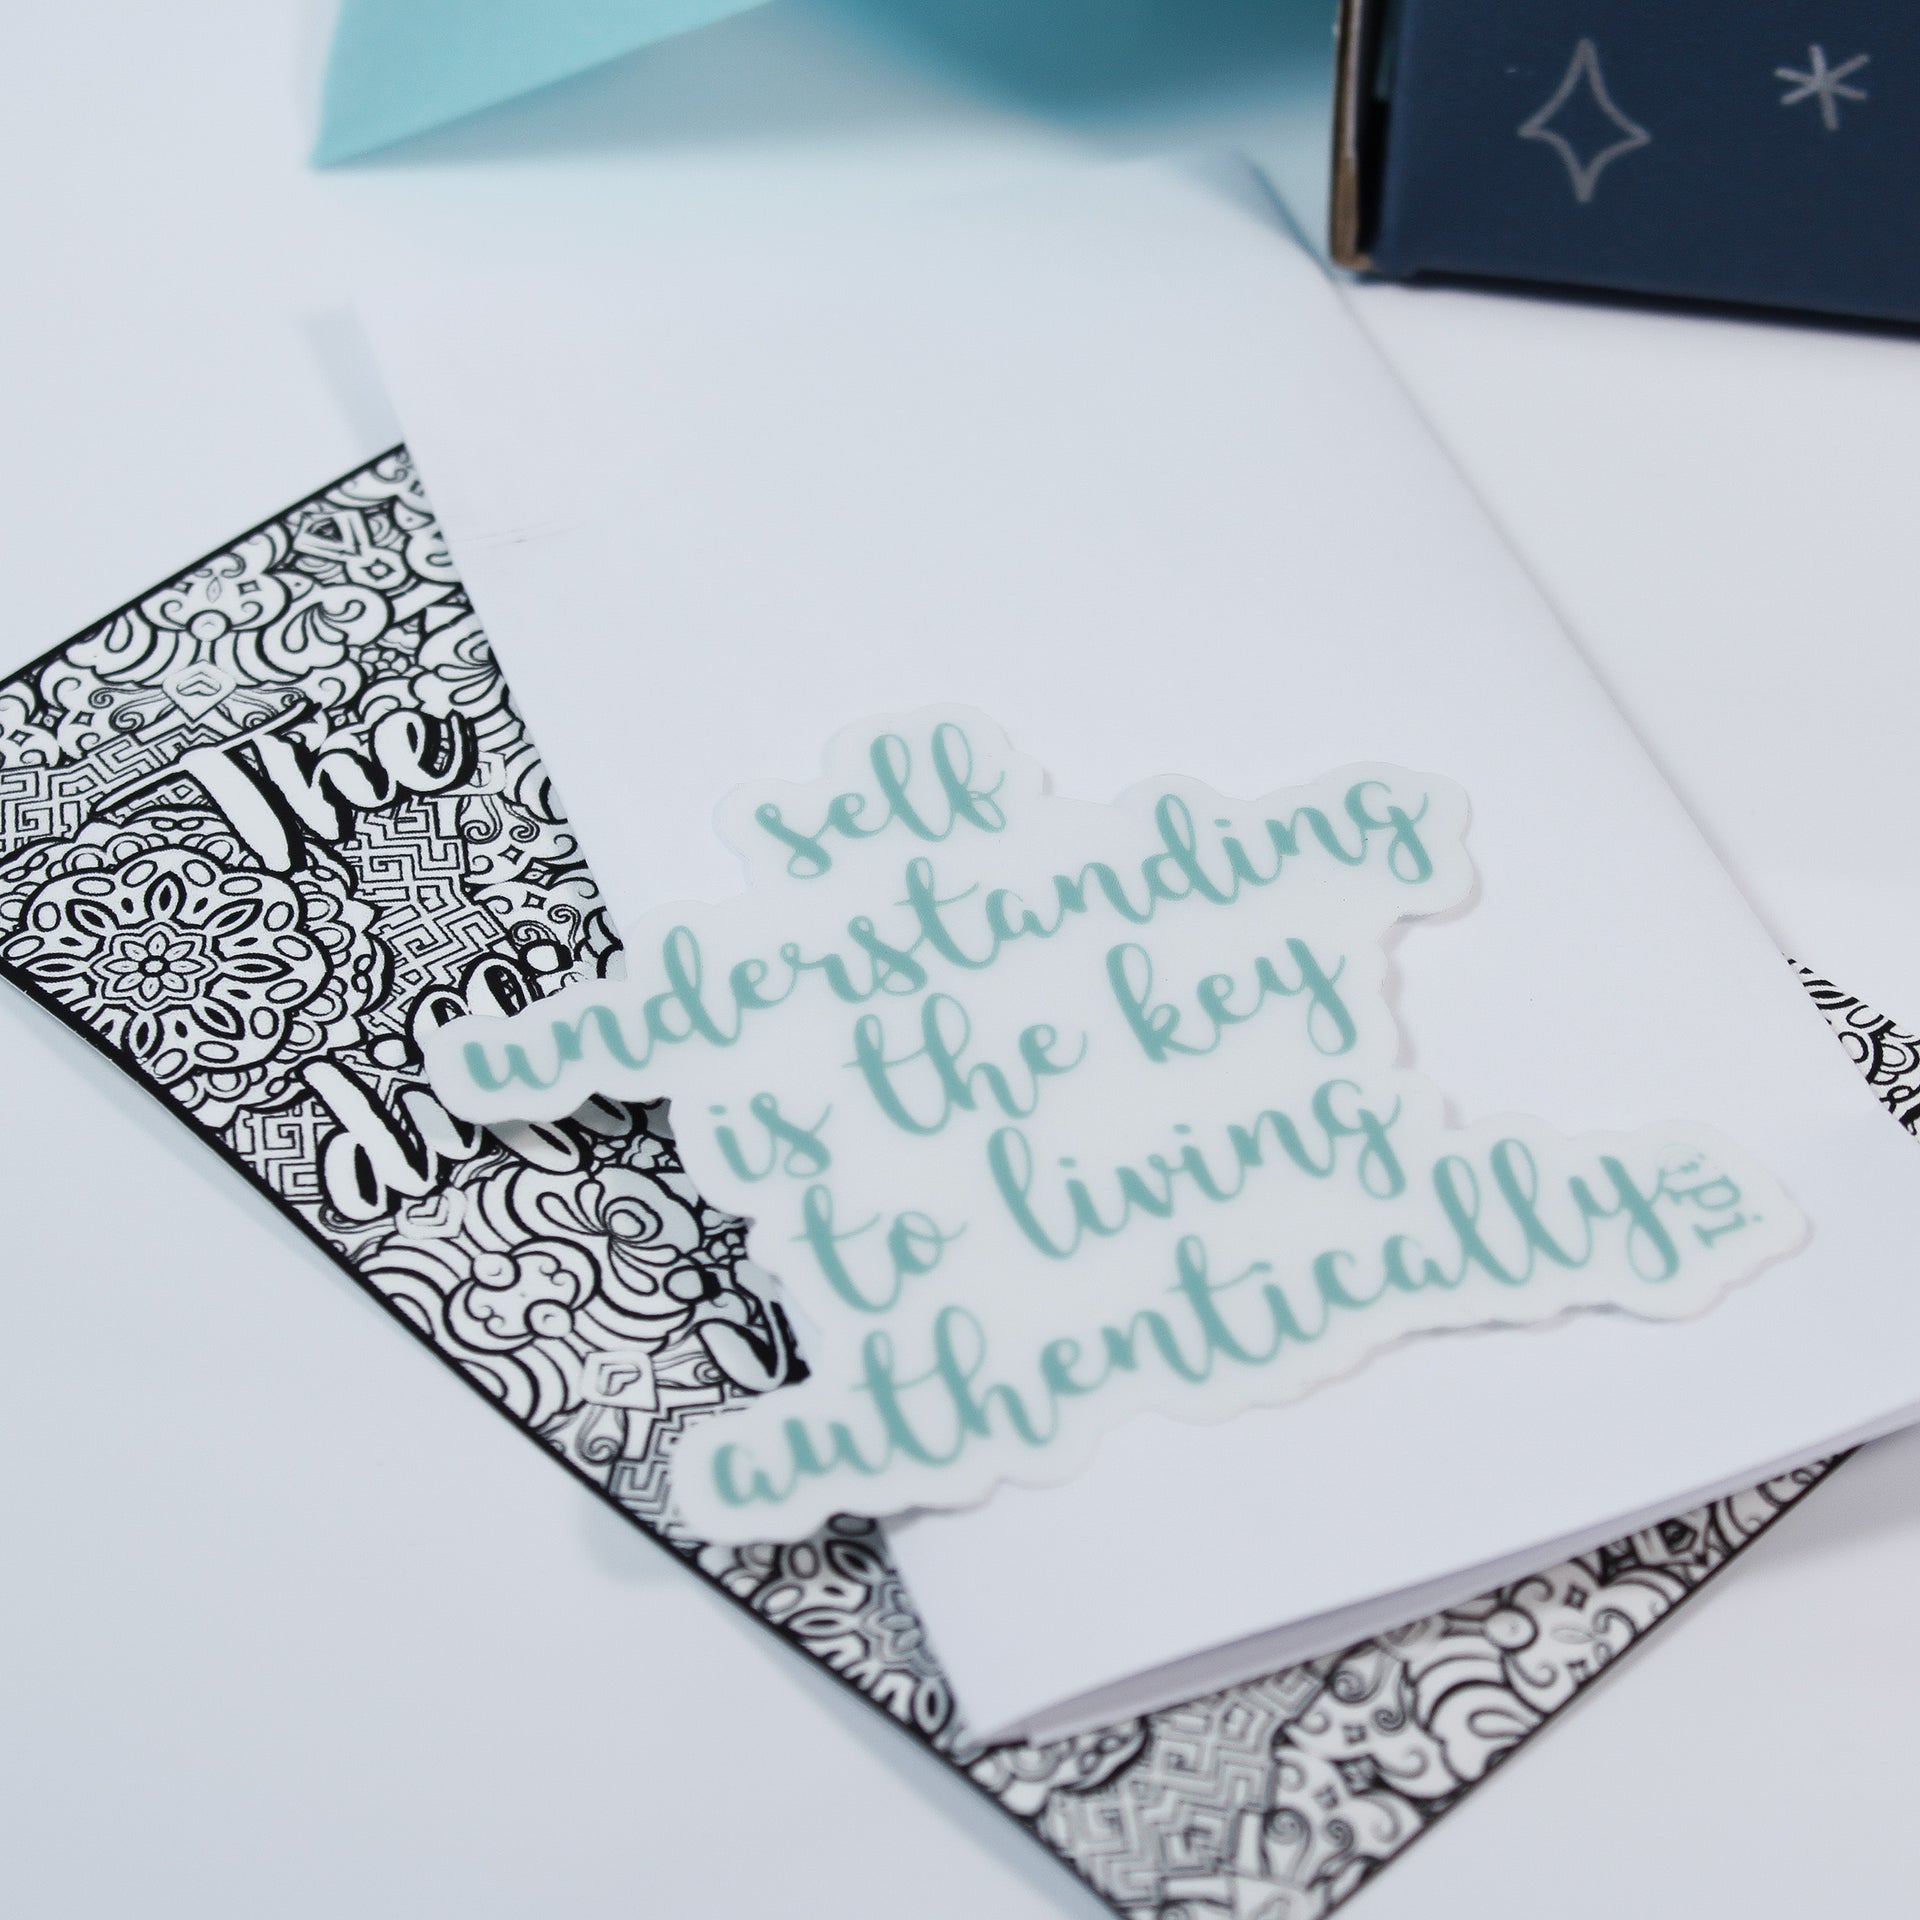 self
understanding
is the key
to living
authentically
ipi
The